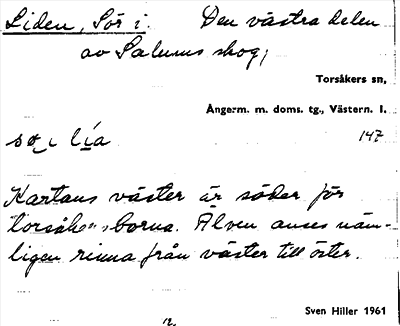 Liden, Sör i. Den västra delen
av Salums skog,
Torsåkers sn,
Ångerm. m. doms. tg., Västern. l.
147
sø̱ i lía
Kartans väster är söder för
torsåkersborna. Älven anses näm-
ligen rinna från väster till öster.
Sven Hiller 1961
12